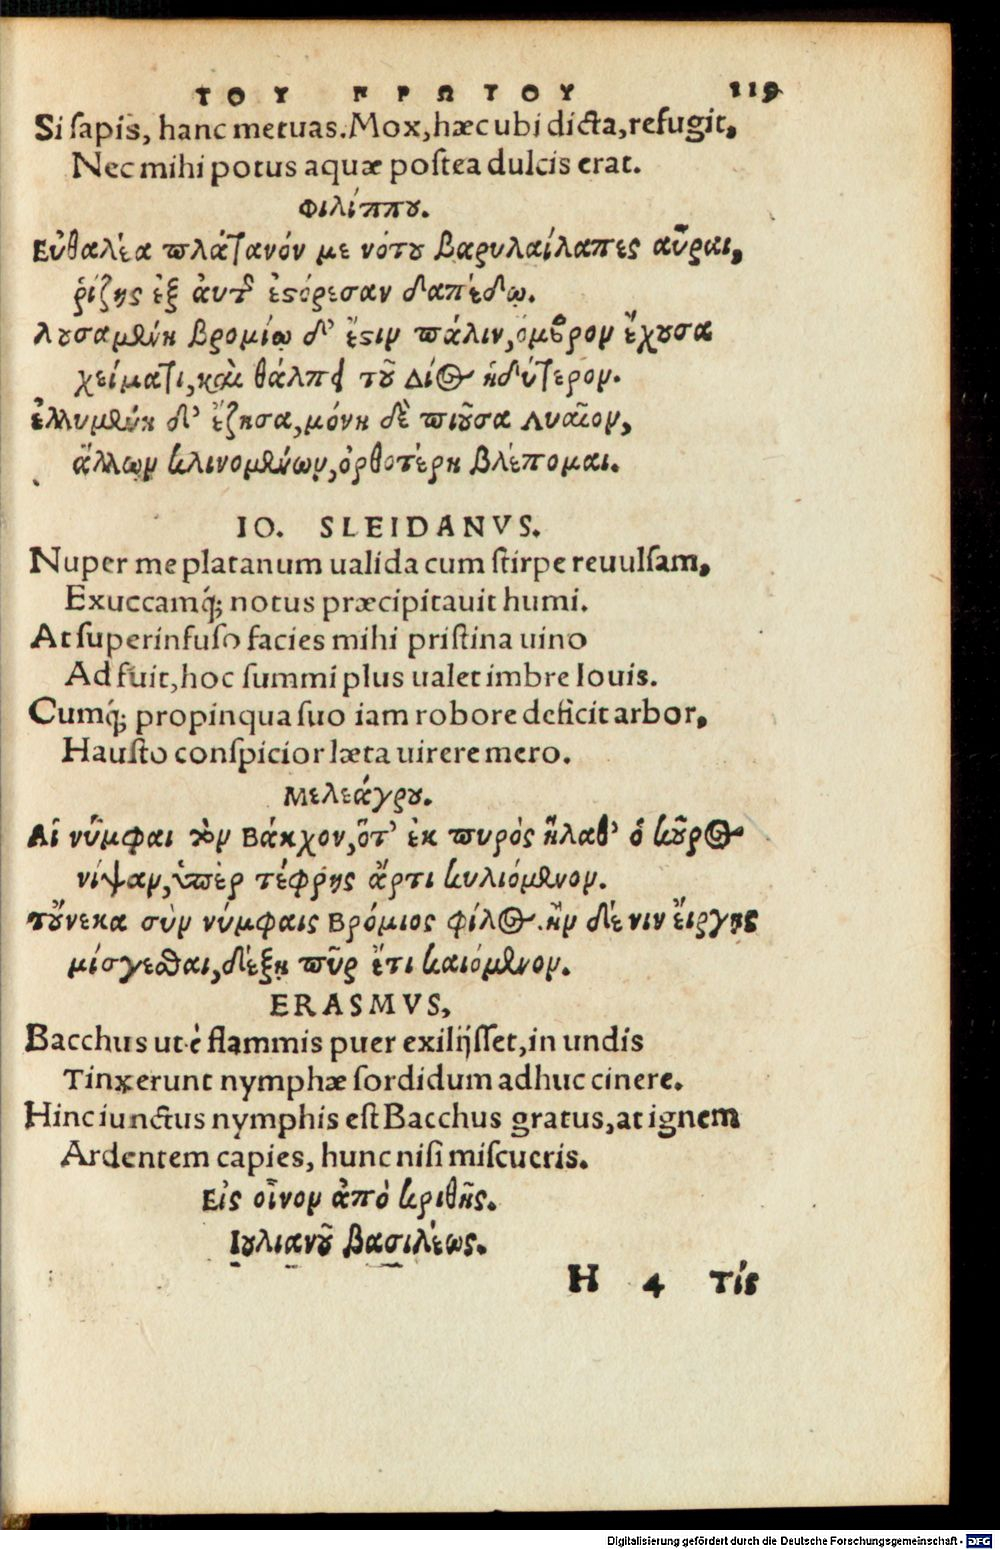 ΤΟΥ ΠΡΩΤΟΥ 119
Si sapis, hanc metuas. Mox, hæc ubi dicta, refugit,
Nec mihi potus aquæ postea dulcis erat.
Φιλίππου.
Εὐθαλέα πλάτανόν με νότου βαρυλαίλαπες αὖραι,
ῥίζης ἐξ ἀυτῆς ἐστόρεσαν δαπέδῳ.
Λουσαμένη Βρομίῳ δ' ἔστην πάλιν, ὄμβρον ἔχουσα
χείματι, καὶ θάλπει τοῦ Διὸς ἡδύτερον.
ἐλλυμένη δ' ἔζησα, μόνη δὲ πιοῦσα Λυαῖον,
ἄλλων κλινομένων, ὀρθοτέρη βλέπομαι.
IO. SLEIDANVS.
Nuper me platanum ualida cum stirpe reuulsam,
Exuccamq́; notus præcipitauit humi.
At superinfuso facies mihi pristina uino
Ad fuit, hoc summi plus ualet imbre Iouis.
Cumq́; propinqua suo iam robore deficit arbor,
Hausto conspicior læta uirere mero.
Μελεάγρου.
Αἱ νῦμφαι τὸν Βάκχον, ὅτ' ἐκ πυρὸς ἥλαθ' ὁ κοῦρος
νίψαν, ὑπὲρ τέφρης ἄρτι κυλιόμενον.
τοὔνεκα σὺν νύμφαις Βρόμιος φίλος. ἢν δέ νιν εἴργῃς
μίσγεσθαι, δέξῃ πῦρ ἔτι καιόμενον.
ERASMVS,
Bacchus ut è flammis puer exilijsset, in undis
Tinxerunt nymphæ sordidum adhuc cinere.
Hinc iunctus nymphis est Bacchus gratus, at ignem
Ardentem capies, hunc nisi miscueris.
Εἰς οἶνον ἀπὸ κριθῆς.
Ιουλιανοῦ βασιλέως.
H 4 Τίς
Digitalisierung gefördert durch die Deutsche Forschungsgemeinschaft - DFG